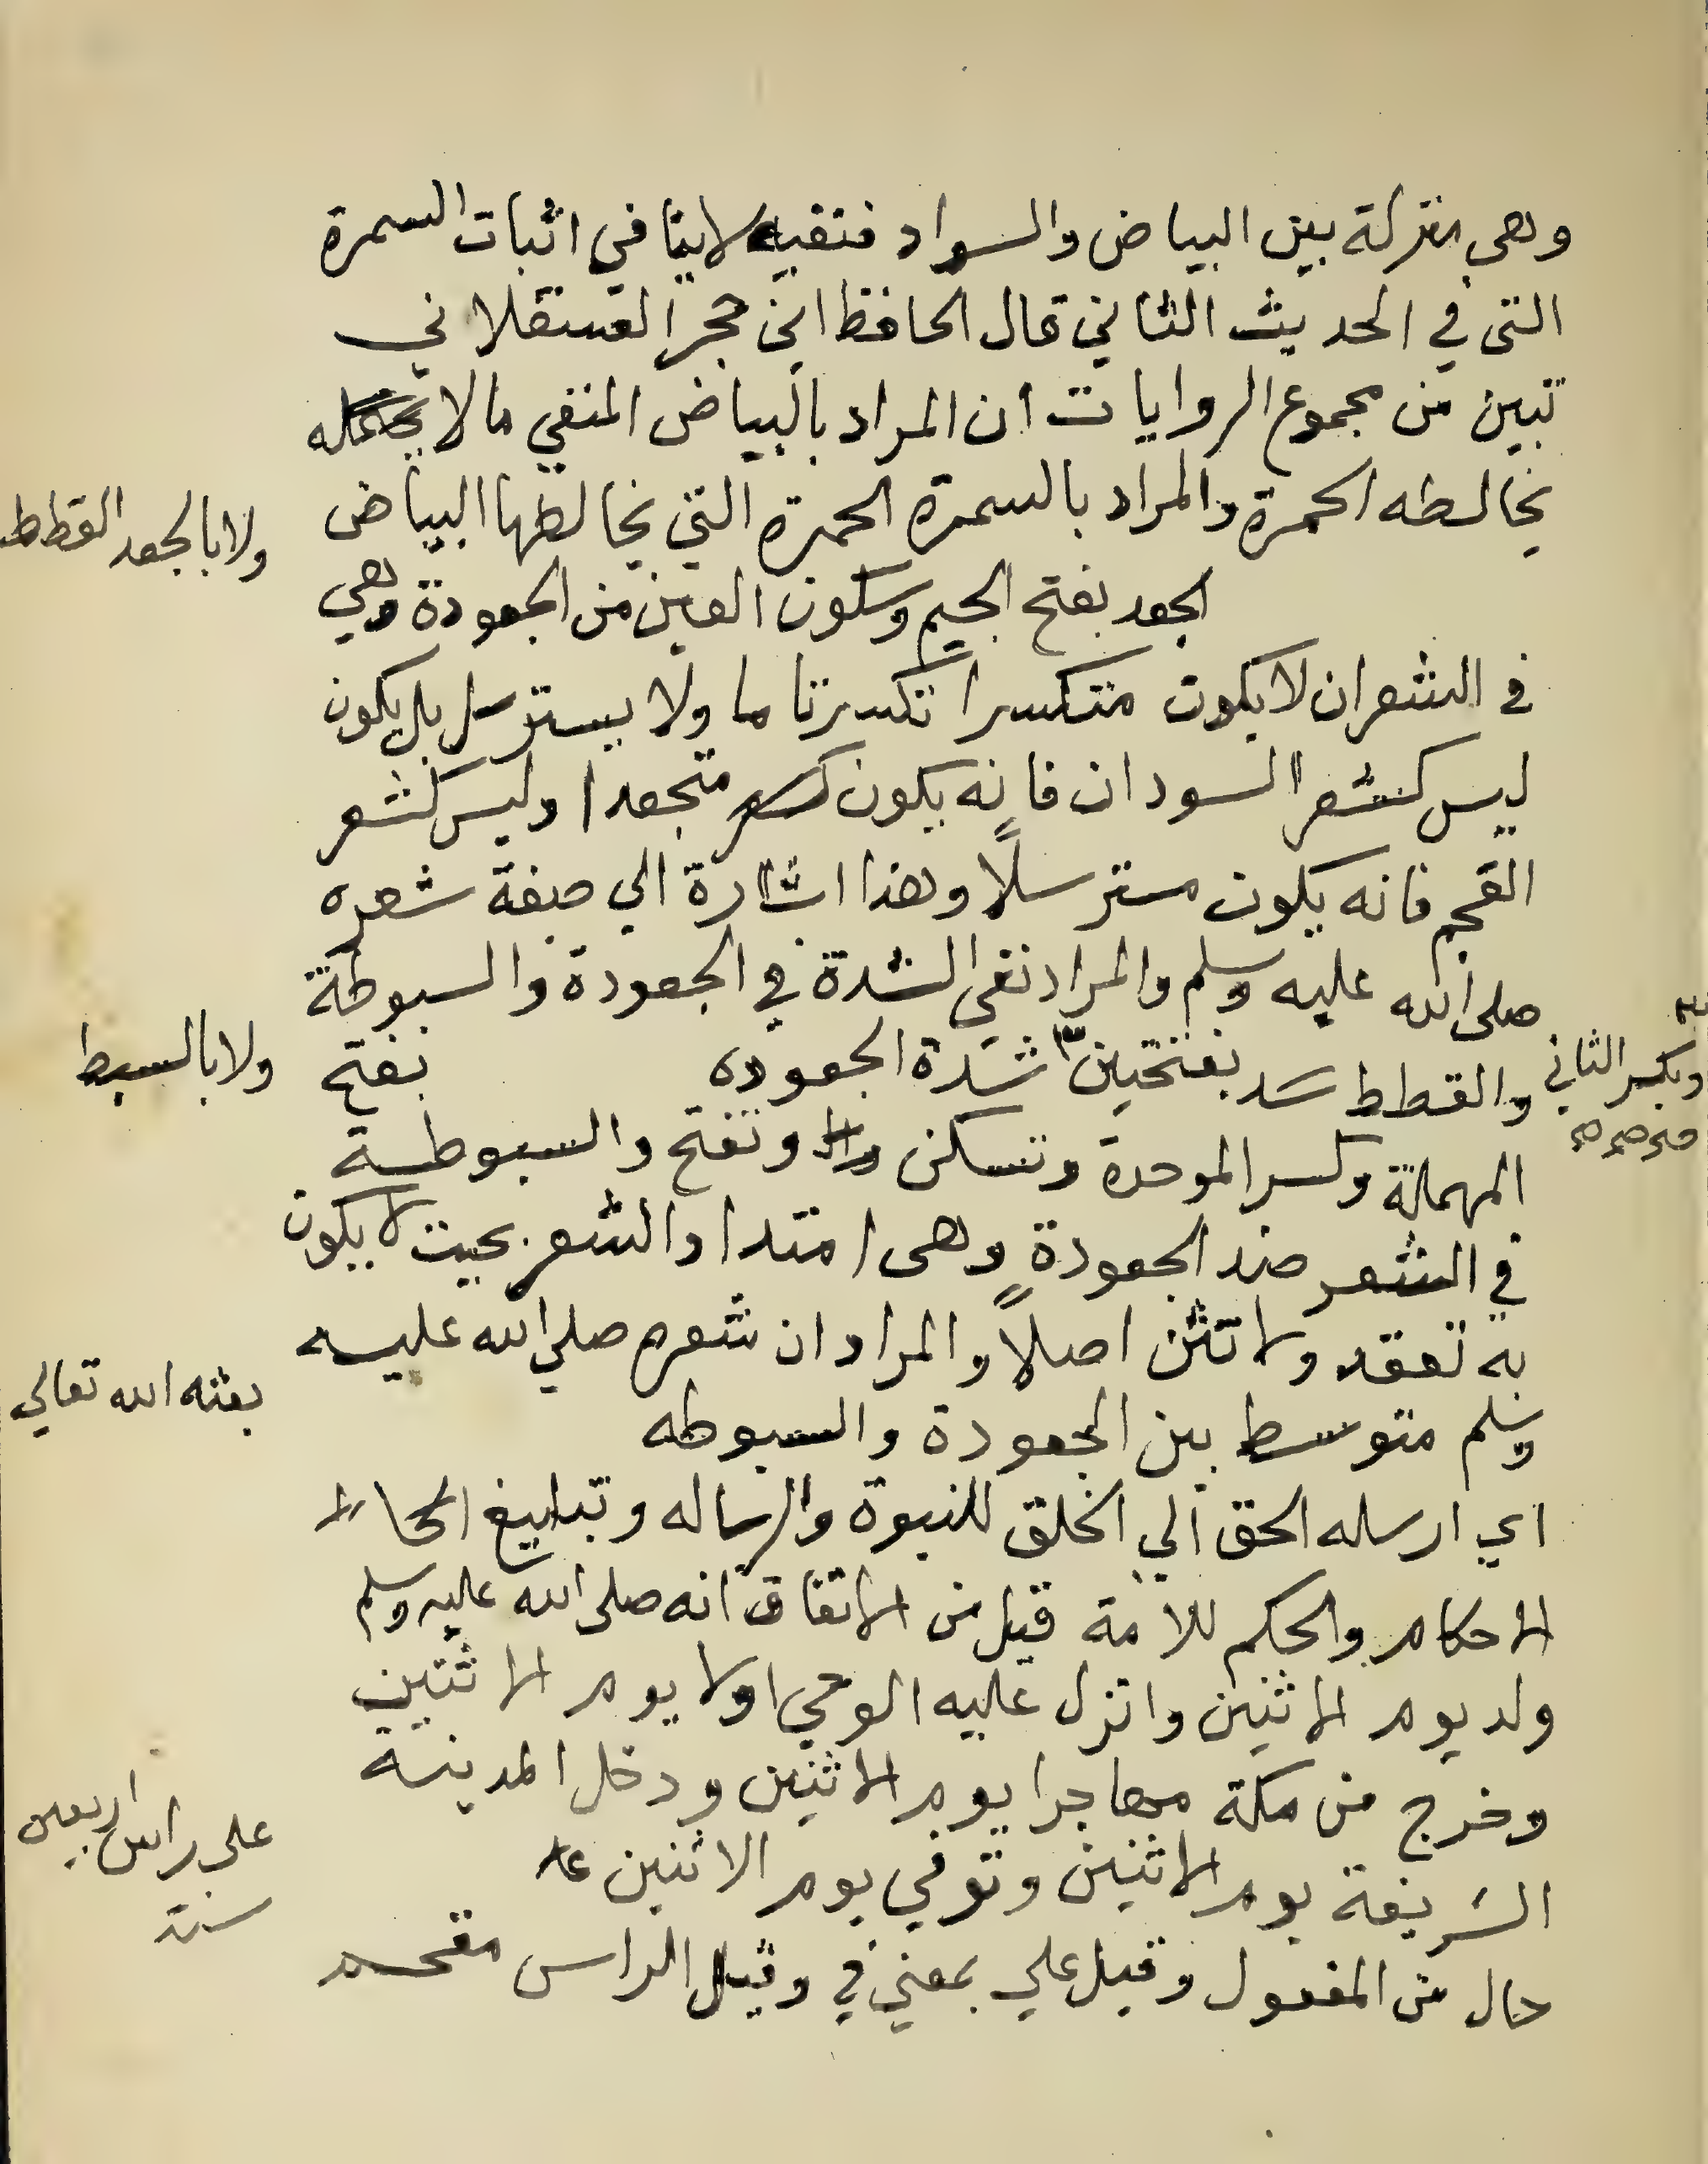 وهي منزلة بين البياض والسواد فنفيه لا ينافي اثبات السمرة
التي في الحديث الثاني قال الحافظ ابن حجر العسقلاني
تبين من مجموع الروايات ان المراد بالبياض المنفي مالا
يخالطه الحمرة والمراد بالسمرة الحمرة التي يخالطها البياض
ولا بالجعد القطط
الجعد بفتح الجيم وسكون العين من الجعودة وهي
في الشعر ان لا يكون متكسرا تكسرتاما ولا يسترسل بل يكون
ليس كشعر السودان فانه يكون متجعدا وليس كشعر
العجم فانه يكون مسترسلاً وهذا اشارة الي صفة شعره
صلى الله عليه وسلم والمراد نفي الشدة في الجعودة والسبوطة
والقطط بفتحتين شدة الجعوده بفتح
وبكسر الثاني
ولا بالسبط
المهملة وكسر الموحدة وتسكن وتفتح والسبوطة
في الشعر ضد الجعودةٍ وهى امتداد الشعر بحيث لا يكون
به تعقد ولا تثن اصلاً والمراد ان شعره صلي الله عليه
وسلم متوسط بين الجعودة والسبوطه
بعثه الله تعالي
اي ارسله الحق الي الخلق للنبوة والرساله وتبليغ
الاحكام والحكم للامة قيل من الاتفاق انه صلى الله عليه وسلم
ولد يوم الاثنين وانزل عليه الوحي اولا يوم الاثنين
وخرج من مكة مهاجرا يوم الاثنين ودخل المدينة
الشريفة يوم الاثنين وتوفي يوم الاثنين
على راس اربعين
سنة
حال من المفعول وقيل علي بمعني في وقيل الراس مقحم